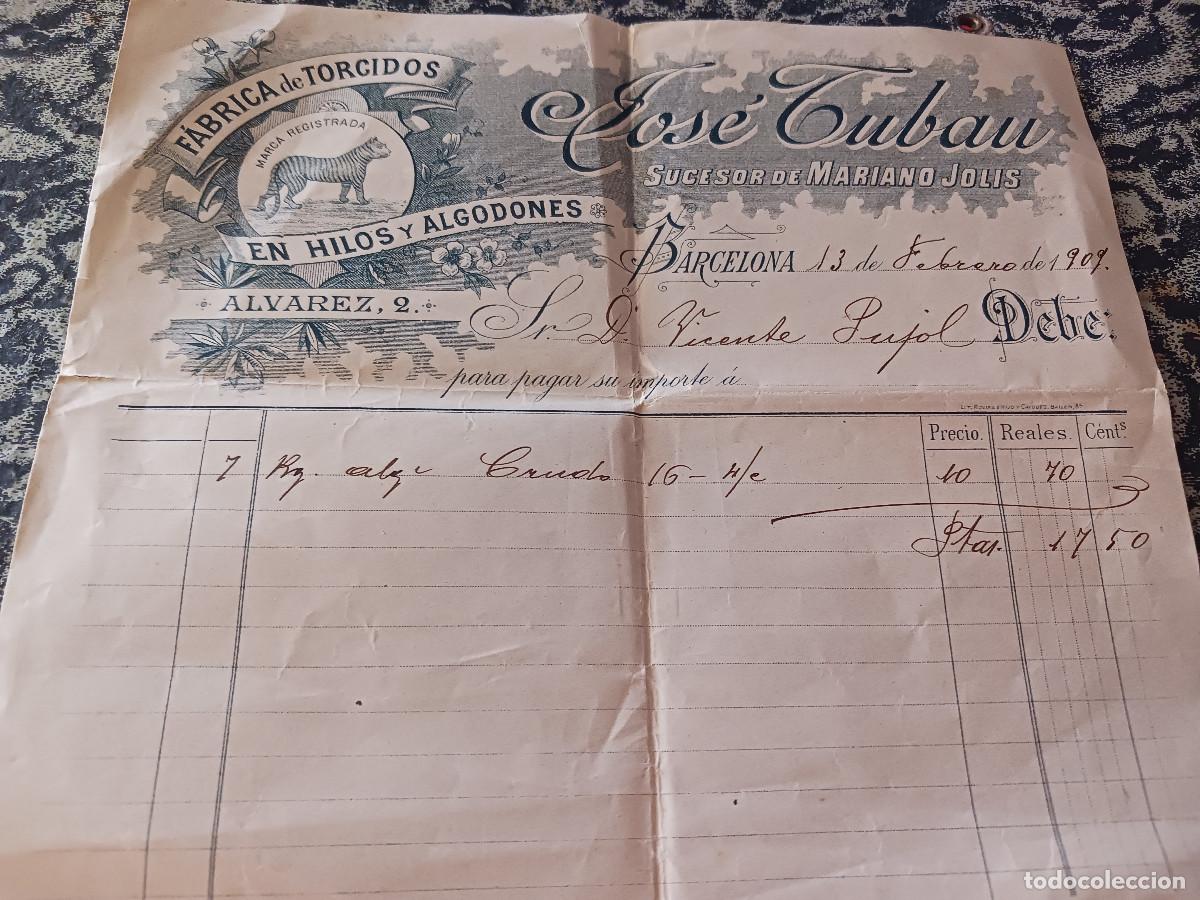 FÁBRICA de TORCIDOS
MARCA REGISTRADA
EN HILOS Y ALGODONES
ALVAREZ, 2.
José Tubau
SUCESOR DE MARIANO JOLIS
BARCELONA 13 de Febrero de 1909.
Sr. D. Vicente Pujol Debe:
para pagar su importe á
Precio. Reales. Cénts.
7 Kg. alg. Crudo 16 - 4/c 10 70
Ptas. 17 50
todocoleccion